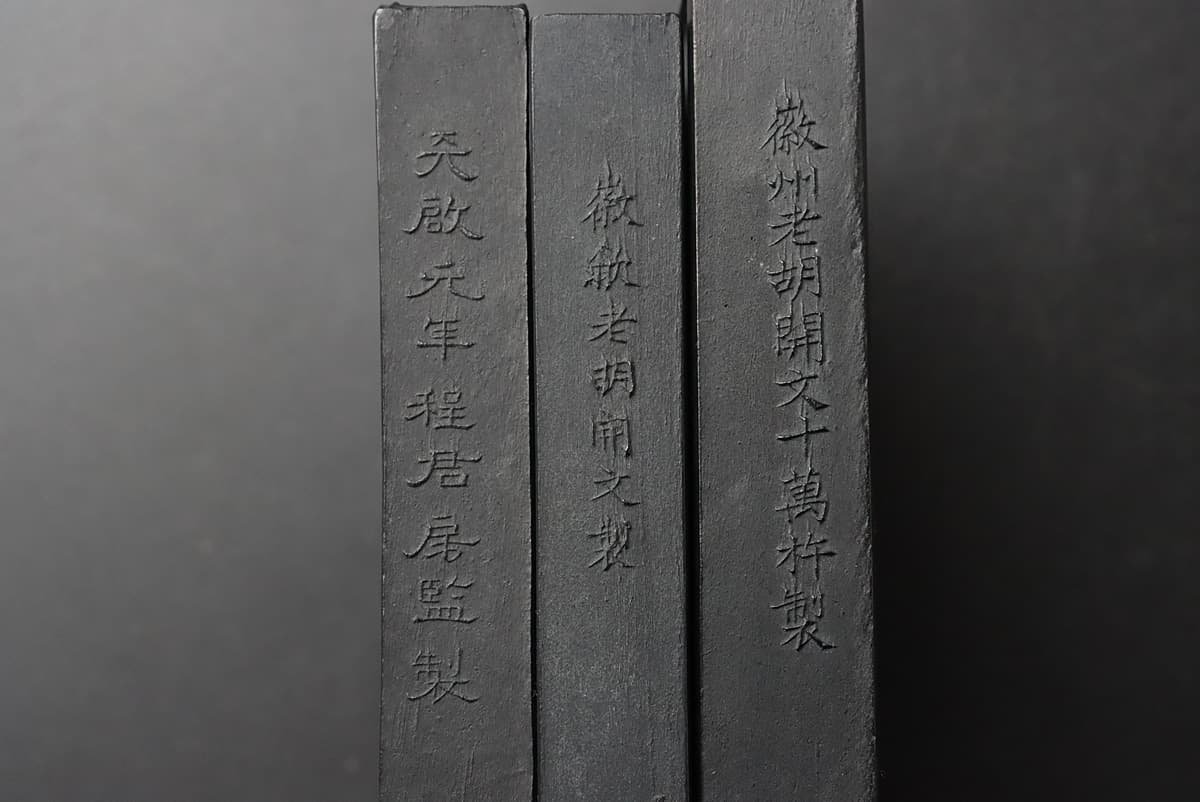 徽州老胡開文十萬杵製
徽歙老胡開文製
天啟元年程君房監製